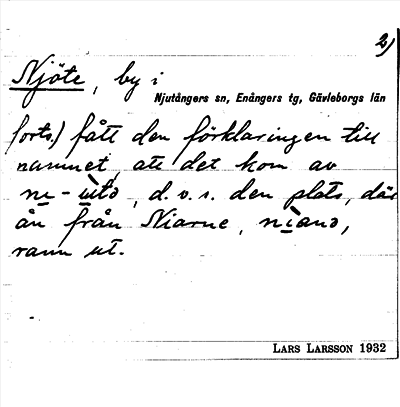 2)
Njöte, by i
Njutångers sn, Enångers tg, Gävleborgs län
forts.) fått den förklaringen till
namnet, att det kom av
ni-ùtə, d.v.s. den plats, där
ån från Niarne, nìanə,
rann ut.
LARS LARSSON 1932